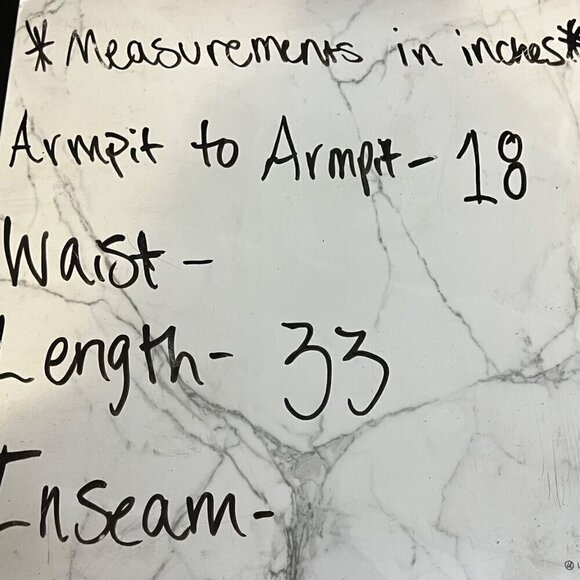 *Measurements in inches*
Armpit to Armpit- 18
Waist-
Length- 33
Inseam-